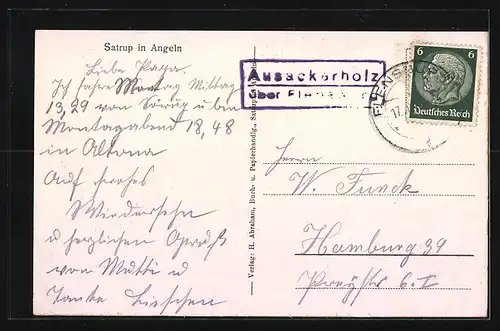 Satrup in Angeln
Liebe Papa.
Ich fahre Montag Mittag
13,29 von Sörup u bin
Montagabend 18,48
in Altona
Auf frohes
Wiedersehn
u herzlichen Gruß
von Mutti u
Tante Lieschen
Verlag: H. Abraham, Buch- u. Papierhandlg., Satrup
Ausackerholz
über Flensburg
FLENSBURG
6 6
Deutsches Reich
Herrn
W. Funck
Hamburg 39
6. I